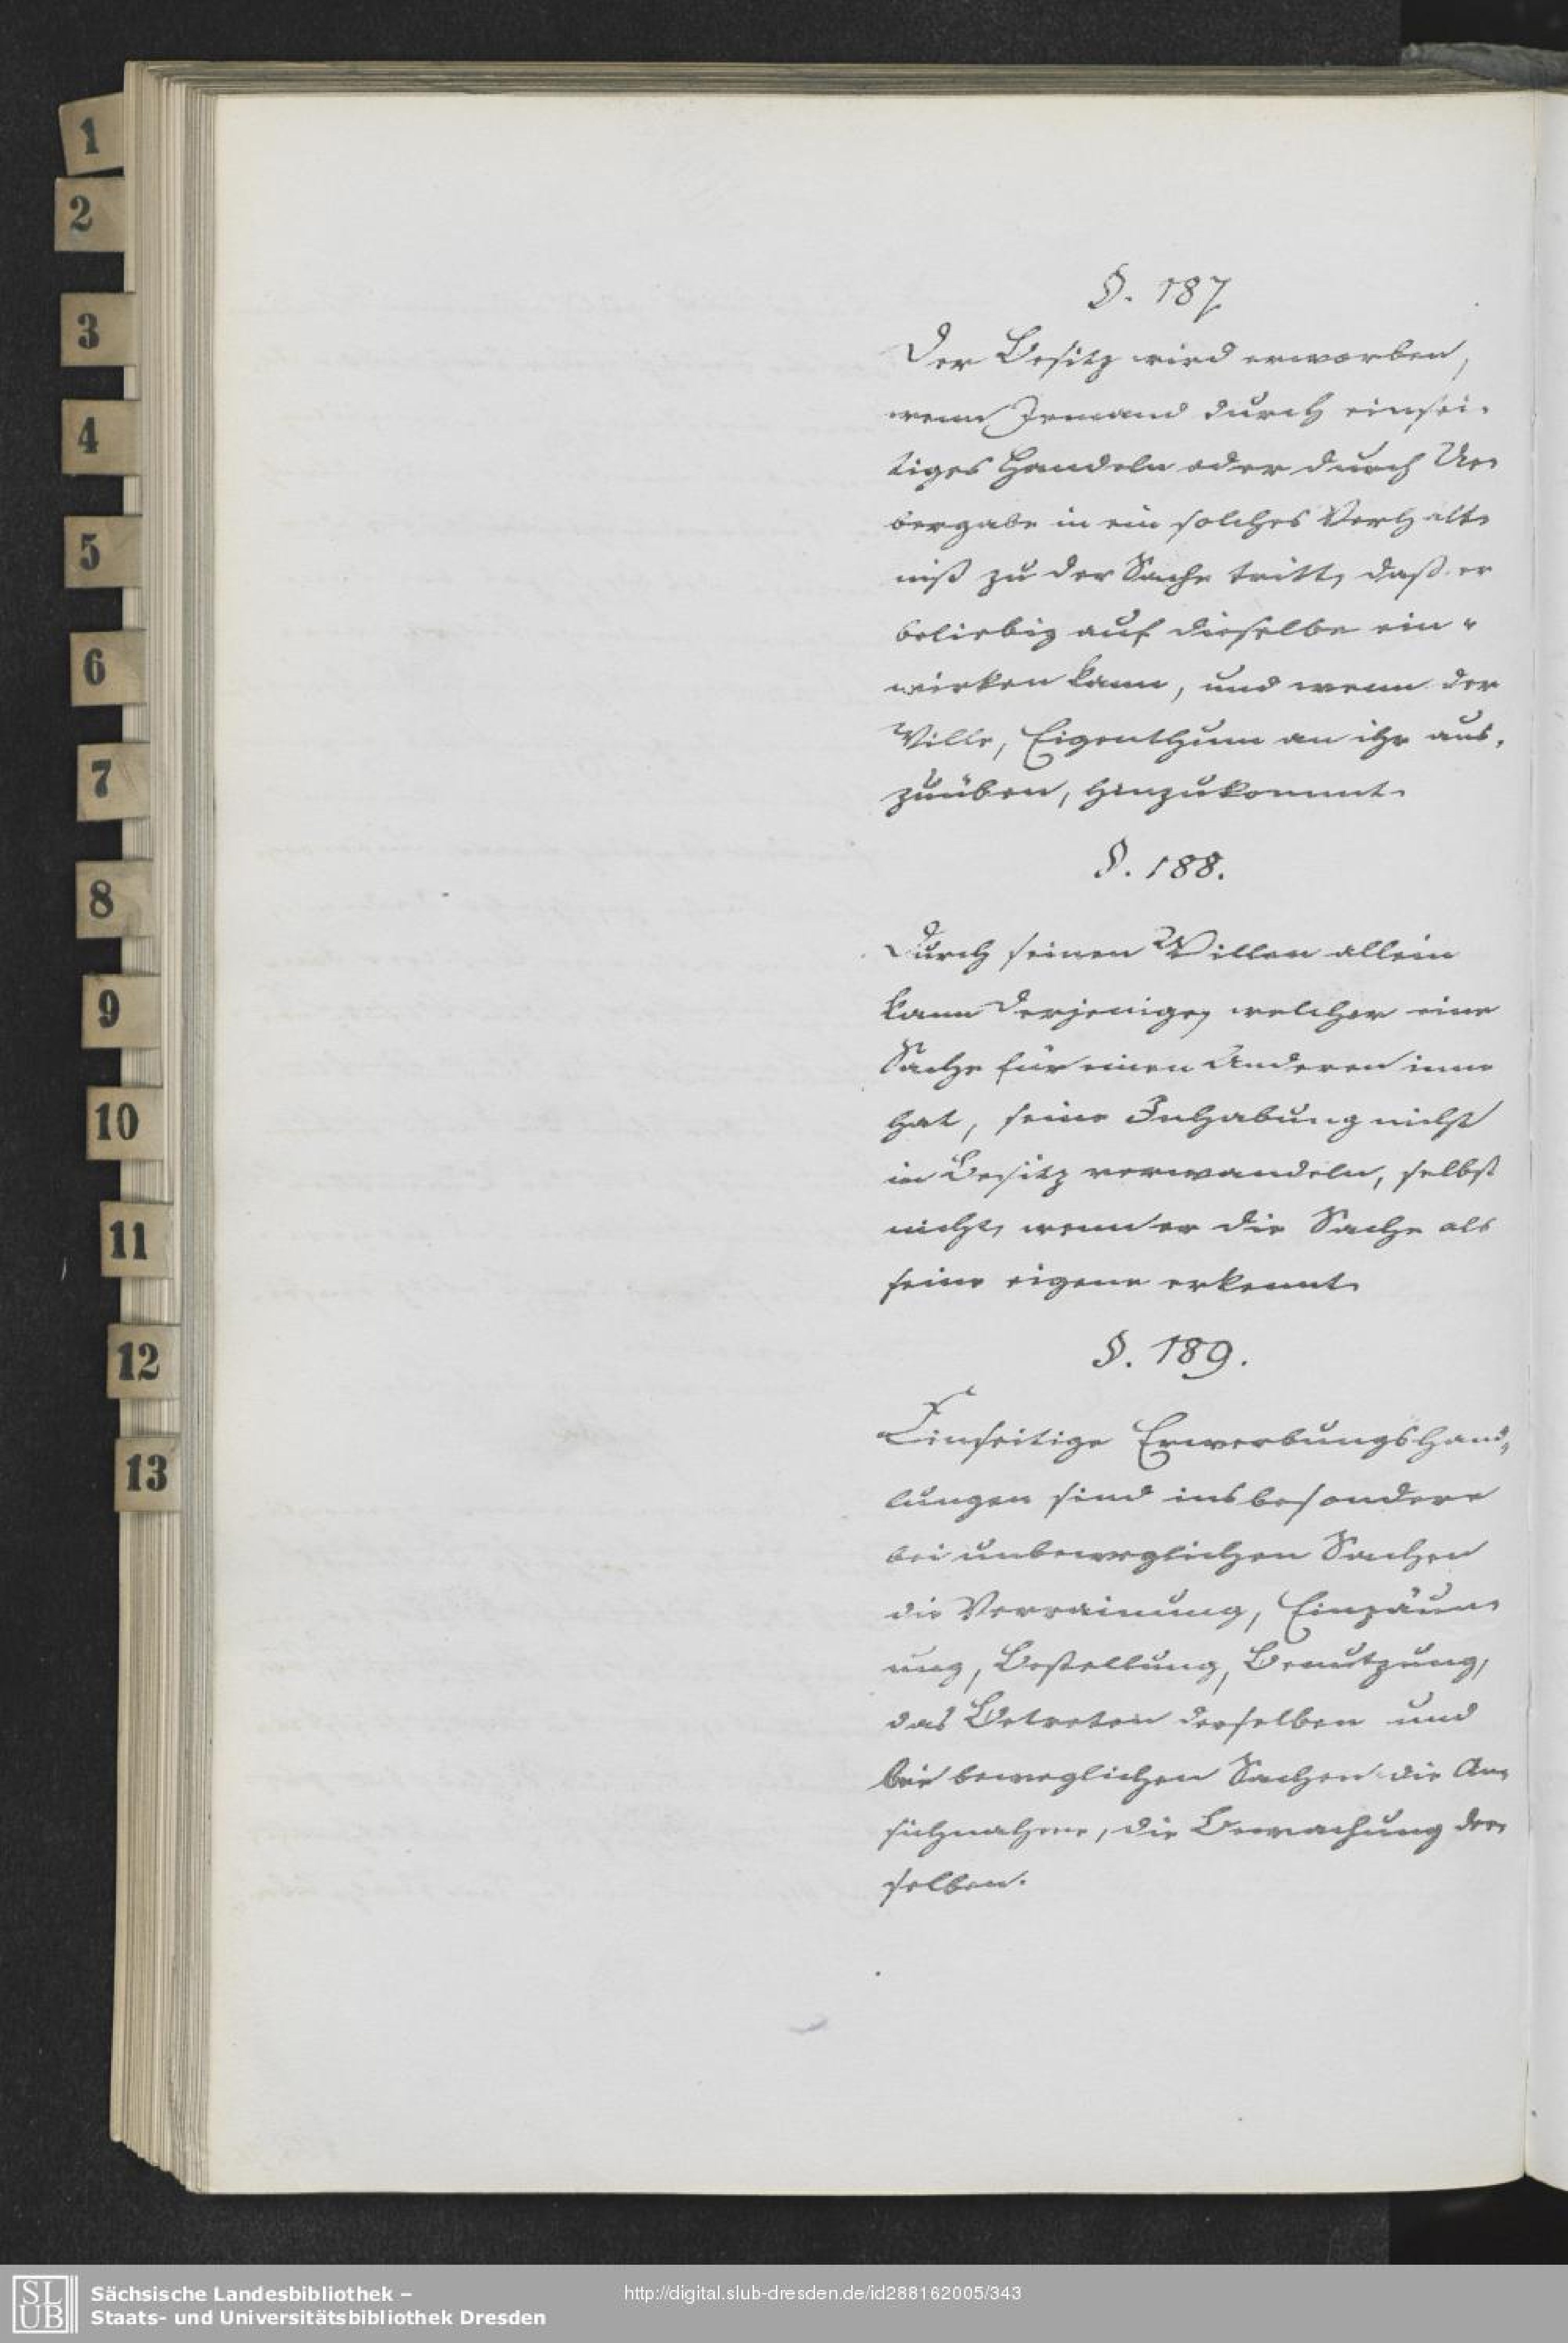 1
2
3
4
5
6
7
8
9
10
11
12
13
§. 187
Der Besitz wird erworben,
wenn Jemand durch einsei-
tiges Handeln oder durch Ue-
bergabe in ein solches Verhält-
niß zu der Sache tritt, daß er
beliebig auf dieselbe ein-
wirken kann, und wenn der
Wille, Eigenthum an ihr aus-
zuüben, hinzukommt.
§. 188.
Durch seinen Willen allein
kann derjenige, welcher eine
Sache für einen Anderen inne
hat, seine Inhabung nicht
in Besitz verwandeln, selbst
nicht, wenn er die Sache als
seine eigene erkennt.
§. 189.
Einseitige Erwerbungshand-
lungen sind insbesondere
bei unbeweglichen Sachen
die Verrainung, Einzäun-
ung, Bestellung, Benutzung,
das Betreten derselben und
bei beweglichen Sachen die An-
sichnahme, die Bewachung der-
selben.
SLUB
Sächsische Landesbibliothek –
Staats- und Universitätsbibliothek Dresden
http://digital.slub-dresden.de/id288162005/343